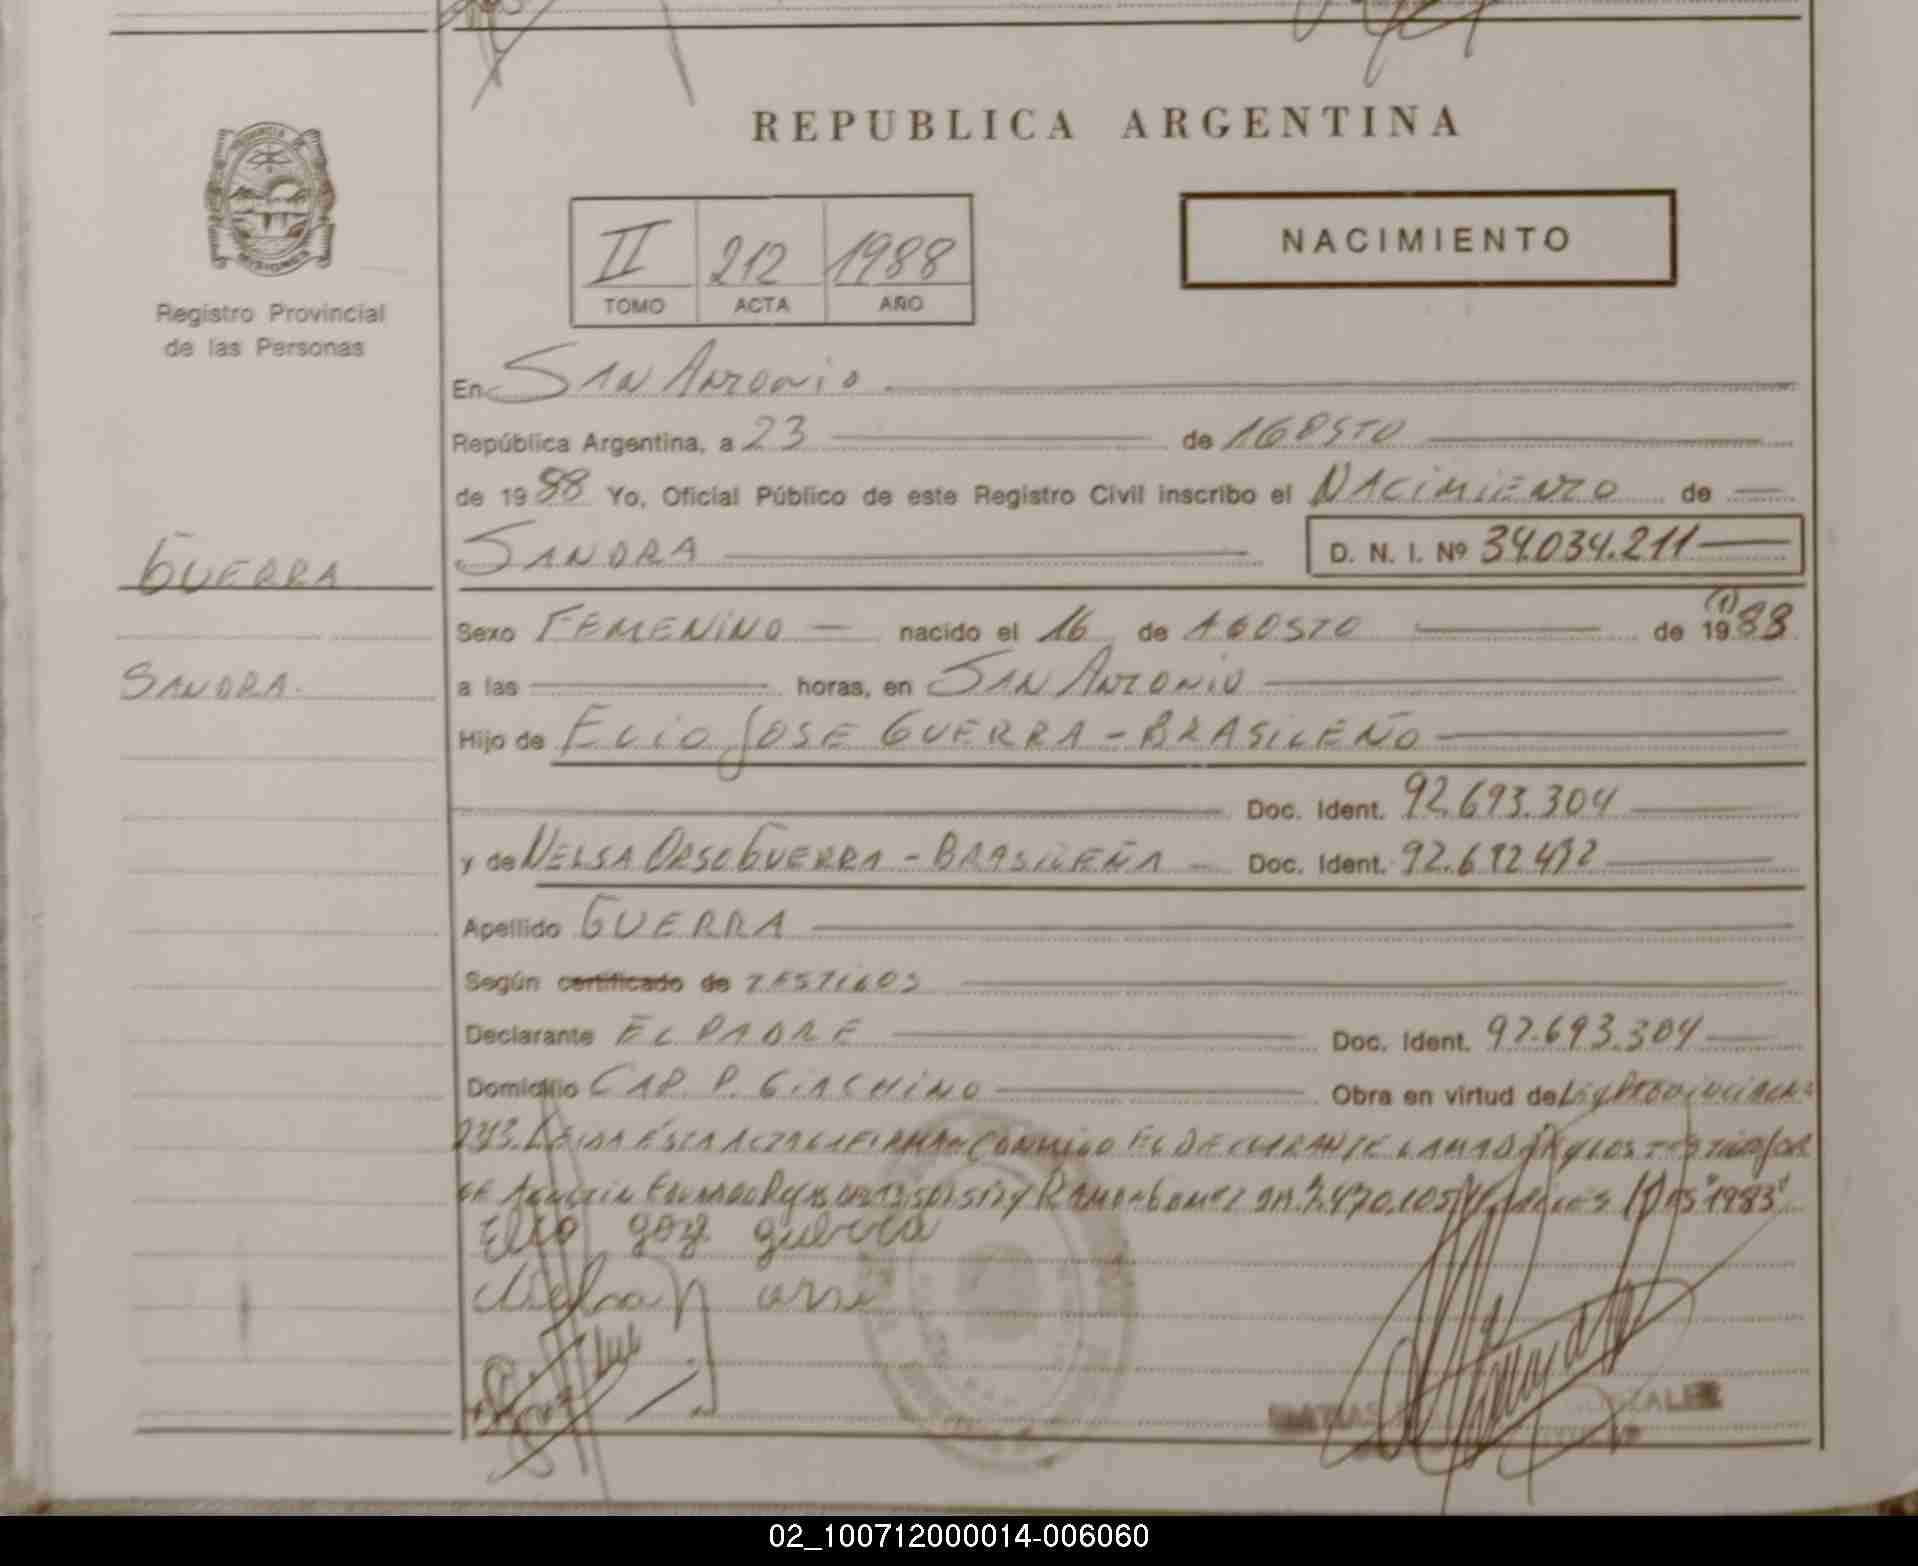 REPUBLICA ARGENTINA
NACIMIENTO
II 212 1988
TOMO ACTA AÑO
Registro Provincial
de las Personas
En SAN ANTONIO
República Argentina, a 23 de AGOSTO
de 1988 Yo, Oficial Público de este Registro Civil inscribo el NACIMIENTO de
GUERRA
SANDRA D. N. I. Nº 34.034.211
Sexo FEMENINO nacido el 16 de AGOSTO de 1988 (1)
SANDRA.
a las horas, en SAN ANTONIO
Hijo de ELIO JOSE GUERRA - BRASILEÑO
Doc. Ident. 92.693.304
y de NELSA ORSO GUERRA - BRASILEÑA Doc. Ident. 92.692.492
Apellido GUERRA
Según certificado de TESTIGOS
Declarante EL PADRE Doc. Ident. 92.693.304
Domicilio CAP. P. GIACHINO Obra en virtud de Ley PROVINCIAL
LEIDA ESTA ACTA LA FIRMAN CONMIGO EL DECLARANTE LA MADRE Y LOS TESTIGOS
Y RAMON GOMEZ
Elio goze guerra
GONZALEZ
02_100712000014-006060